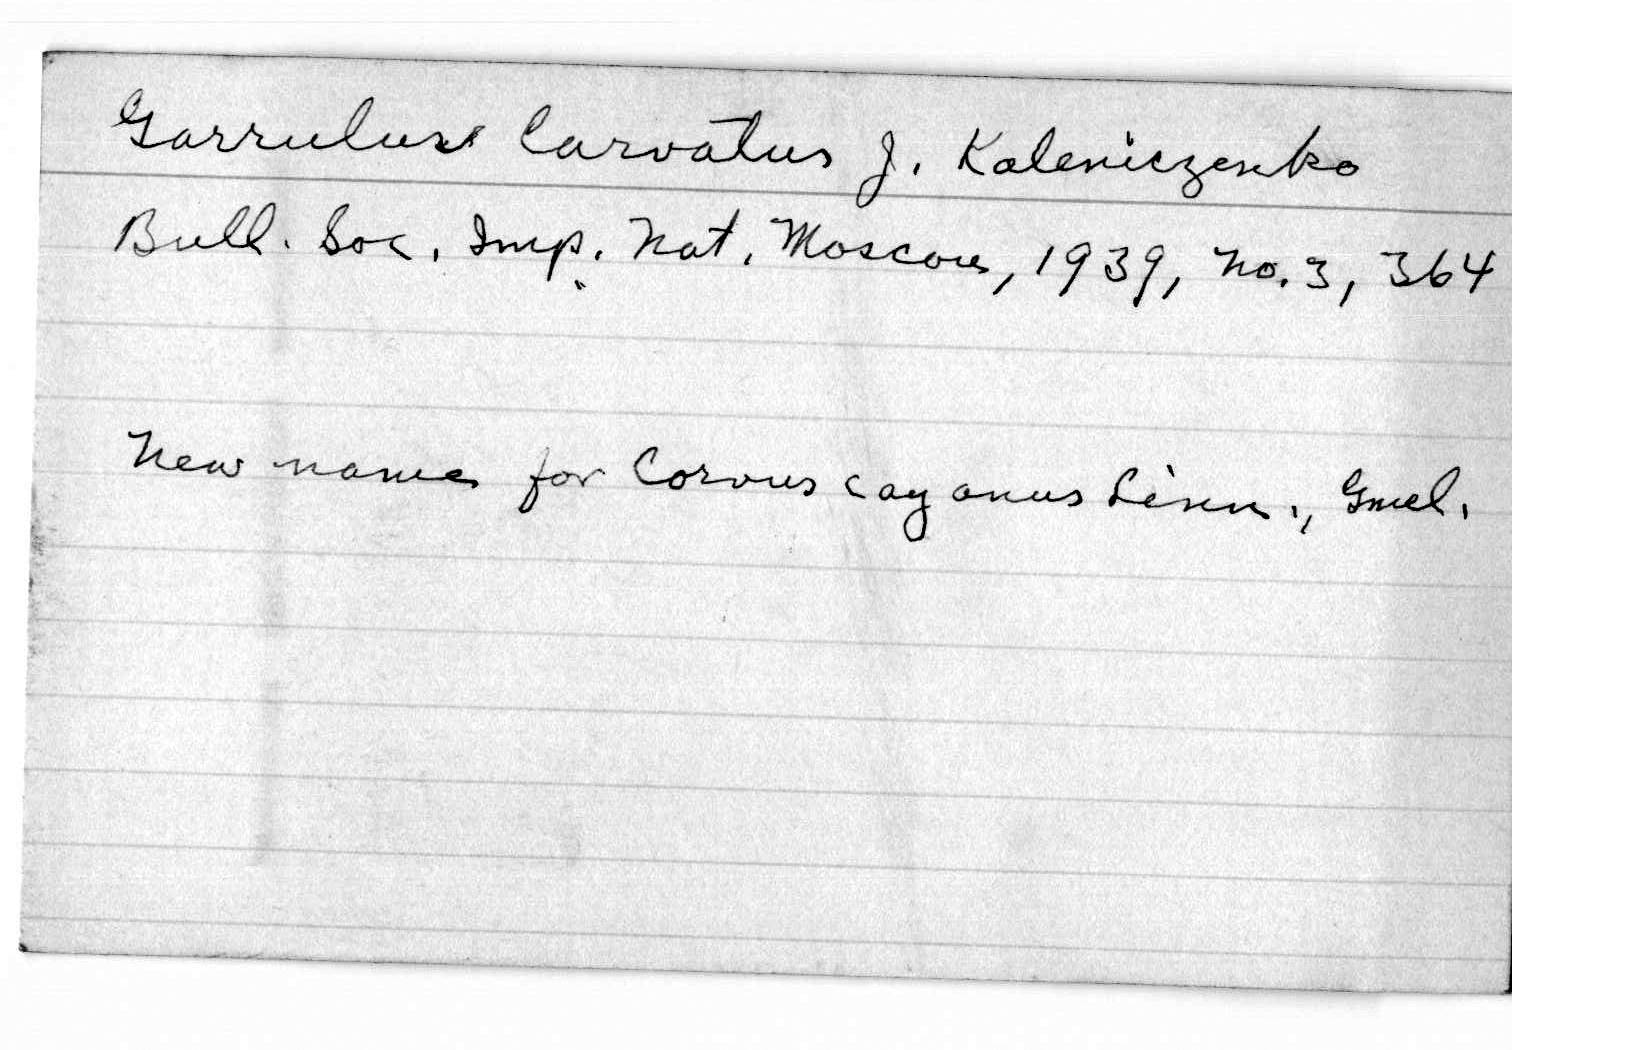 Garrulus larvatus J. Kaleniczenko
Bull. Soc. Imp. Nat. Moscou, 1939, no. 3, 364
New name for Corvus cayanus Linn., Gmel.